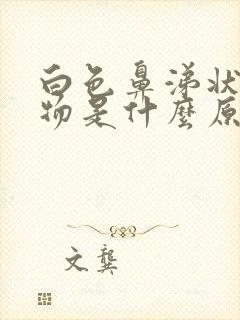 白色鼻涕状
物是什麼原
文龔